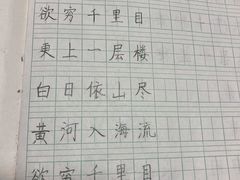 欲穷千里目
更上一层楼
白日依山尽
黄河入海流
欲穷千里目